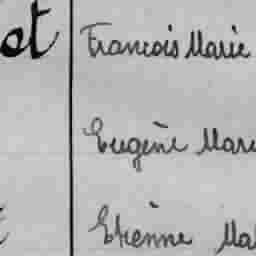 ot François Marie
Eugène Mari
t Etienne Ma